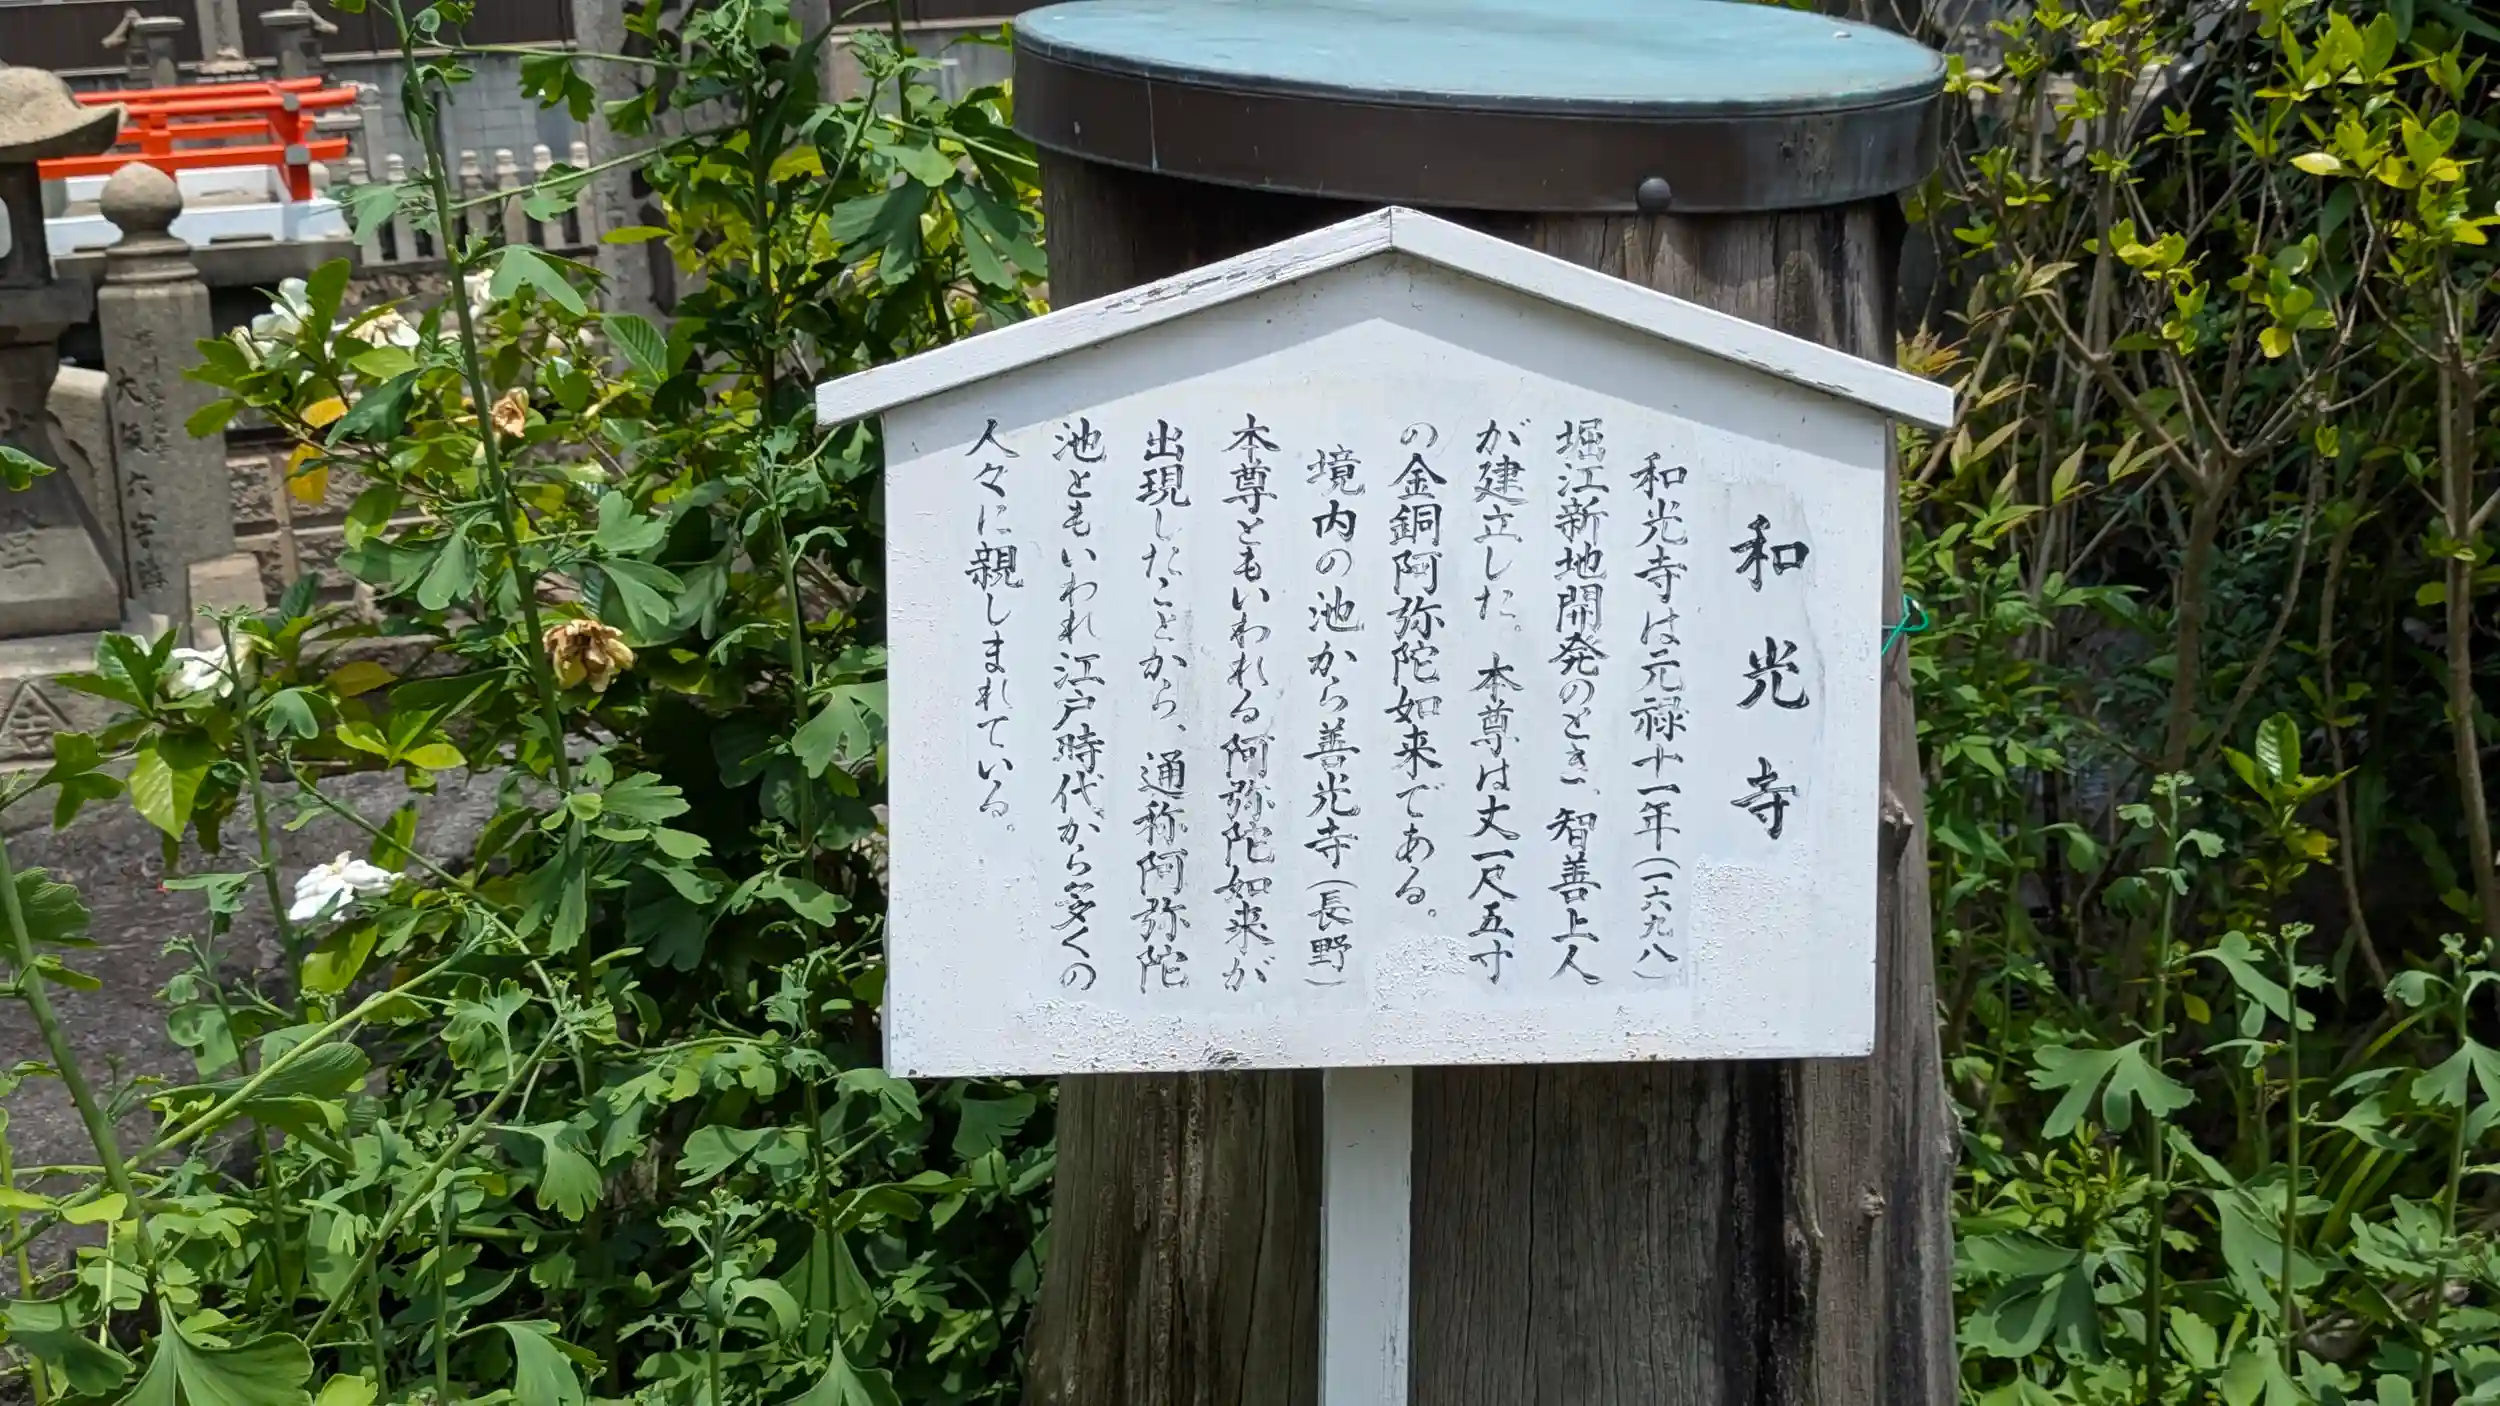 和光寺
和光寺は元禄十一年(一六九八)
堀江新地開発のとき、智善上人
が建立した。本尊は丈一尺五寸
の金銅阿弥陀如来である。
境内の池から善光寺(長野)
本尊ともいわれる阿弥陀如来が
出現したことから、通称阿弥陀
池ともいわれ江戸時代から多くの
人々に親しまれている。
大阪